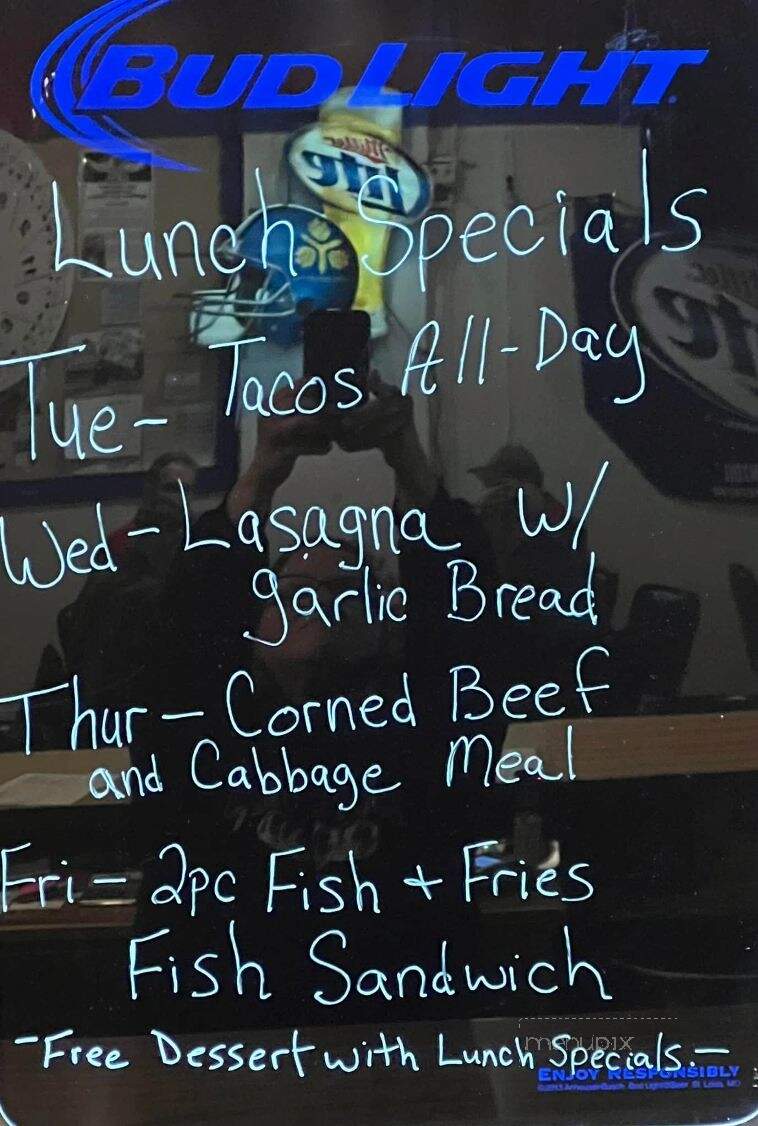 BUD LIGHT
Miller
Lite
Lunch Specials
Miller
Lite
Tue- Tacos All-Day
Wed- Lasagna w/
garlic Bread
Thur- Corned Beef
and Cabbage Meal
Fri- 2pc Fish + Fries
Fish Sandwich
menupix
-Free Dessert with Lunch Specials.-
ENJOY RESPONSIBLY